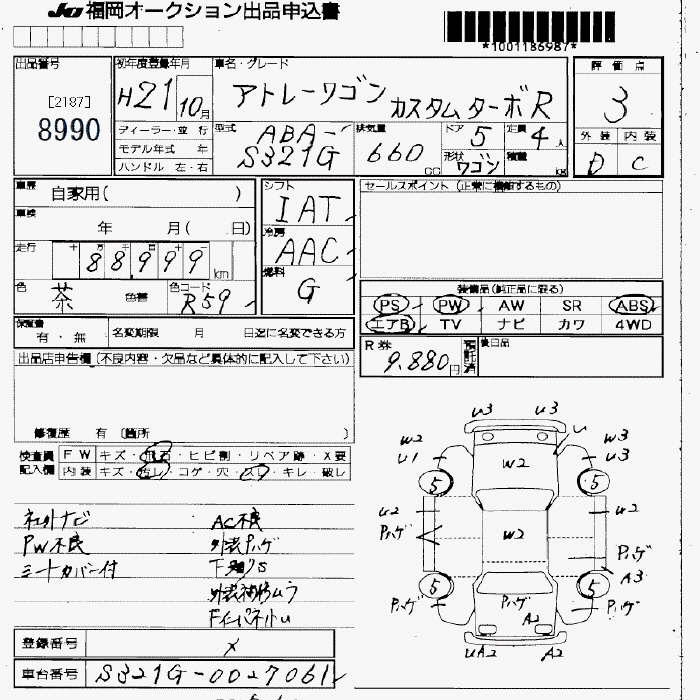 JU福岡オークション出品申込書
*1001186987*
出品番号 初年度登録年月 車名・グレード 評価点
[2187]
8990
H21 10月
アトレーワゴン カスタムターボR
3
外装 内装
D C
ディーラー・並行
モデル年式 年
ハンドル 左・右
型式 ABA-
S321G
排気量 660 CC
ドア 5 定員 4人
形状 ワゴン 積載 KG
車歴 自家用( )
車検 年 月( 日)
走行 十万千
88,999 km
色 茶 色替 色コード R59
シフト IAT
冷房 AAC
燃料 G
セールスポイント (正常に機能するもの)
装備品(純正品に限る)
PS PW AW SR ABS
エアB TV ナビ カワ 4WD
R券 9,880円 預託済 後日品
保証書 有・無 名変期限 月 日迄に名変できる方
出品店申告欄 (不良内容・欠品など具体的に記入して下さい)
修復歴 有 (箇所 )
検査員 FW キズ・飛石・ヒビ割・リペア跡・X要
記入欄 内装 キズ・汚レ・コゲ・穴・スレ・キレ・破レ
ネットナビ AC不良
PW不良 外装ハゲ
シートカバー付 下廻りS
外装補修ムラ
U3 U3
W2 W3
U1 U U3
W2
5 5
U2 W2 U2
ハゲ ハゲ
A3
5 5
ハゲ ハゲ ハゲ
A2
UA2 A2
登録番号 X
車台番号 S321G-0027061